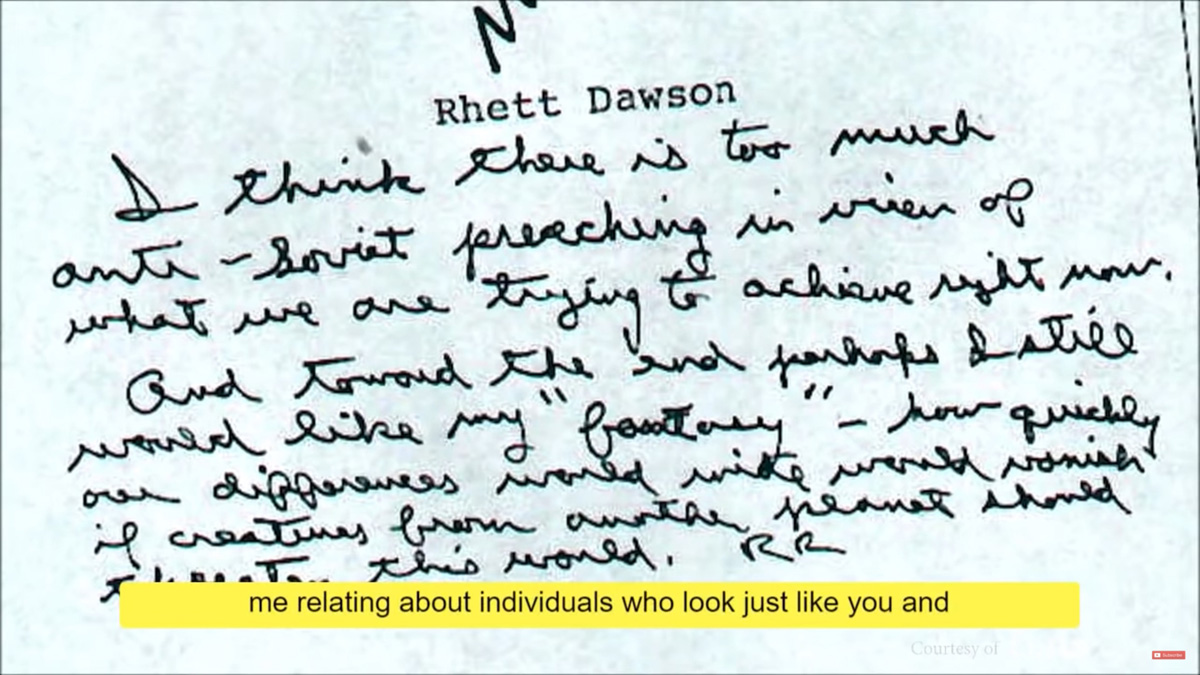 Rhett Dawson
I think there is too much
anti-Soviet preaching in view of
what we are trying to achieve right now.
And toward the end perhaps I still
would like my "fantasy" - how quickly
our differences world wide would vanish
if creatures from another planet should
threaten this world. RR
me relating about individuals who look just like you and
Courtesy of
Subscribe